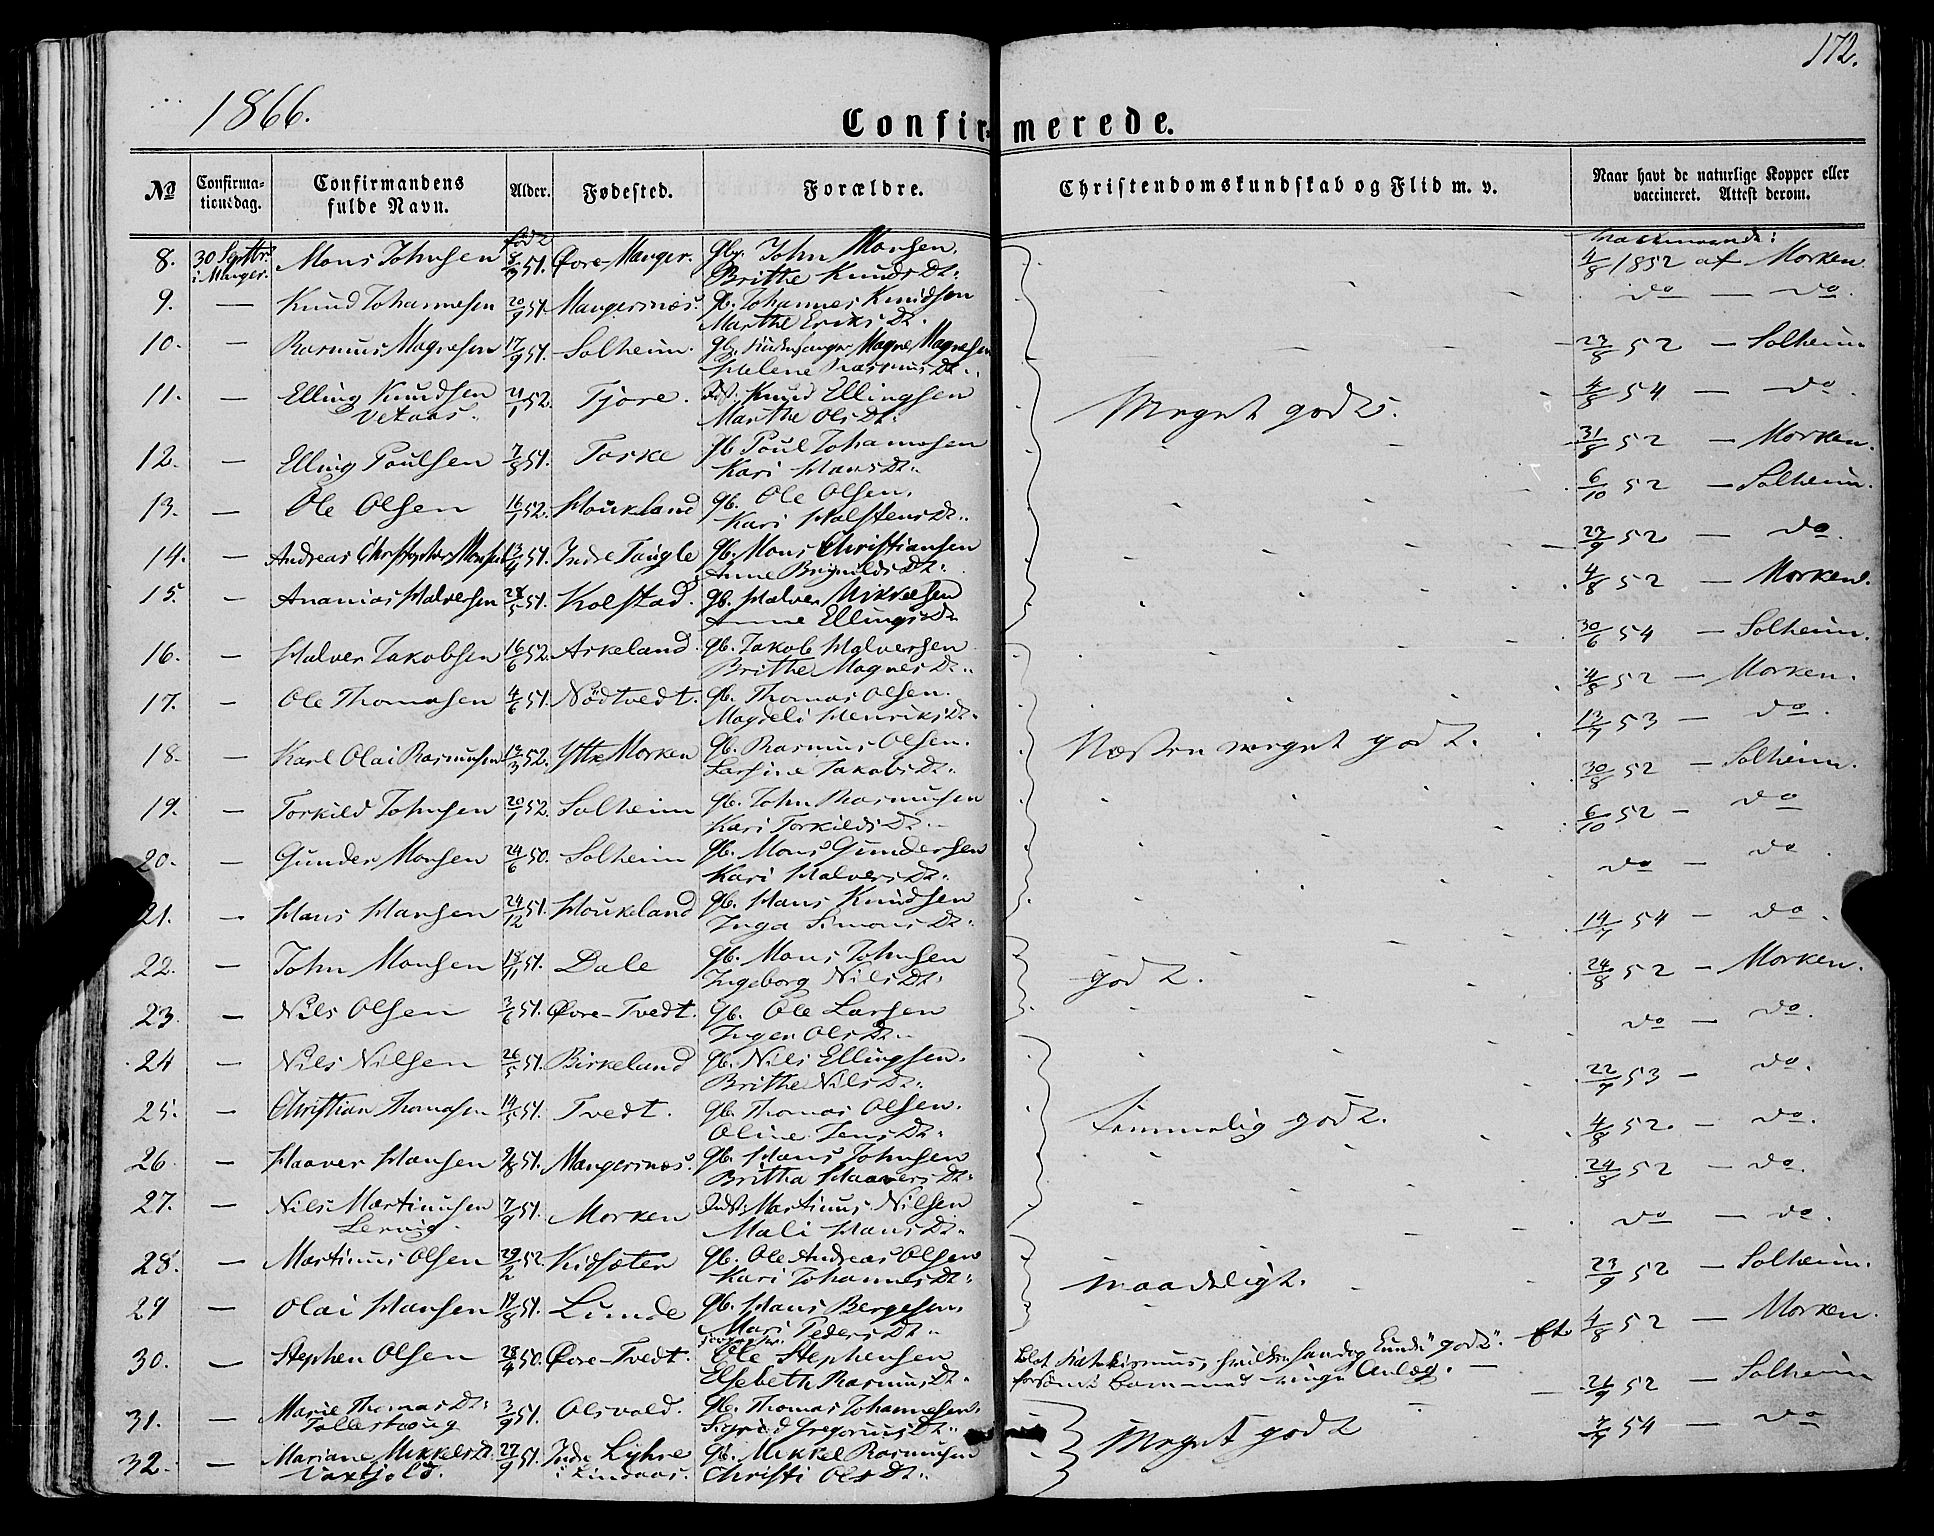 172.
1866.
Confirmerede.
No Confirmationsdag. Confirmandens fulde Navn. Alder. Fødested. Forældre. Christendomskundskab og Flid m. v. Naar havt de naturlige Kopper eller vaccineret. Attest derom.
født
8. 30 Septbr. i Manger. Mons Johnsen 51. Øvre-Manger. Gbr. John Monsen. Brithe KnudsDt: 4/8 1852 af Morken.
9. — Knud Johannesen 20/9 51. Mangernæs. Gb. Johannes Knudsen Marthe EriksDt. do — do.
10. — Rasmus Magnesen 17/9 51. Solheim. Gb. Kirkesanger Magne Magnesen Helene RasmusDt: 23/8 52 — Solheim
11. — Elling Knudsen Vetaas. 52. Tjore. Knud Ellingsen Marthe OlsDt: Meget godt. 4/8 54 — do.
12. — Elling Poulsen 7/8 51. Toske Gb. Poul Johannesen Kari HansDt: 31/8 52 — Morken.
13. — Ole Olsen 16/1 52. Houkeland Gb. Ole Olsen. Kari HalstensDt: 6/10 52 — Solheim.
14. — Andreas Christopher Monsen 13/4 51. Indre Taugle Gb. Mons Christiansen Anne BrynildsDt: 23/9 52 — do.
15. — Ananias Halversen 28/5 51. Kolstad. Gb. Halver Mikkelsen Anne EllingsDt: 4/8 52 — Morken.
16. — Halver Jakobsen 16/6 52. Askeland. Gb. Jakob Halversen Brithe MagnesDt: 30/6 54 — Solheim.
17. — Ole Thomasen 4/6 51. Nødtvedt. Gb. Thomas Olsen. Magdeli HenriksDt: 4/8 52 — Morken.
18. — Karl Olai Rasmusen 13/3 52. Ytre Morken Gb. Rasmus Olsen. Larsine JakobsDt: Næsten meget godt. 13/7 53 — do.
19. — Torkild Johnsen 20/1 52. Solheim Gb. John Rasmusen Kari TorkildsDt: 30/8 52 — Solheim.
20. — Gunder Monsen 24/6 50. Solheim Gb. Mons Gundersen Kari HalversDt: 6/10 52 — do
21. — Hans Hansen 24/12 51. Houkeland Gb. Hans Knudsen Inga SimonsDt: do — do.
22. — John Monsen 18/11 51. Dale Gb. Mons Johnsen Ingeborg NilsDt: godt. 14/7 54 — do.
23. — Nils Olsen 3/6 51. Øvre-Tvedt. Gb. Ole Larsen Inger OlsDt: 24/8 52 — Morken.
24 — Nils Nilsen 26/5 51. Birkeland Gb. Nils Ellingsen. Brithe NilsDt: do — do.
25. — Christian Thomasen 14/5 51. Tvedt. Gb. Thomas Olsen. Oline JensDt: Temmelig godt. 22/9 53 — do.
26. — Haaver Hansen 51. Mangernæs. Gb. Hans Johnsen Britha HaaversDt: 4/8 52. — do.
27. — Nils Martinusen Lervig. 7/9 51. Morken Martinus Nilsen Mali HansDt: 24/8 52 — do.
28. — Martinus Olsen 29/2 52. Kidsæter Gb. Ole Andreas Olsen Kari JohannesDt: maadeligt. do — do.
29 — Olai Hansen 19/8 51. Lunde Gb. Hans Bergesen. Mari PedersDt: 23/9 52 — Solheim.
30. — Stephen Olsen 50. Øvre-Tvedt. Ole Stephensen Elsebeth RasmusDt: blot Katekismus, godt". Et forsømt Barn med ringe Anlæg. 4/8 52 — Morken.
31. — Marie ThomasDt: 3/9 51. Olsvold. Gb. Thomas Johannesen. Sigrid GregoriusDt: 21/9 52 — Solheim
32. — Mariane MikkelsDt: 27/9 51. Indre Lyhre i Lindaas. Gb. Mikkel Rasmusen Christi OlsDt: Meget godt 54 — do